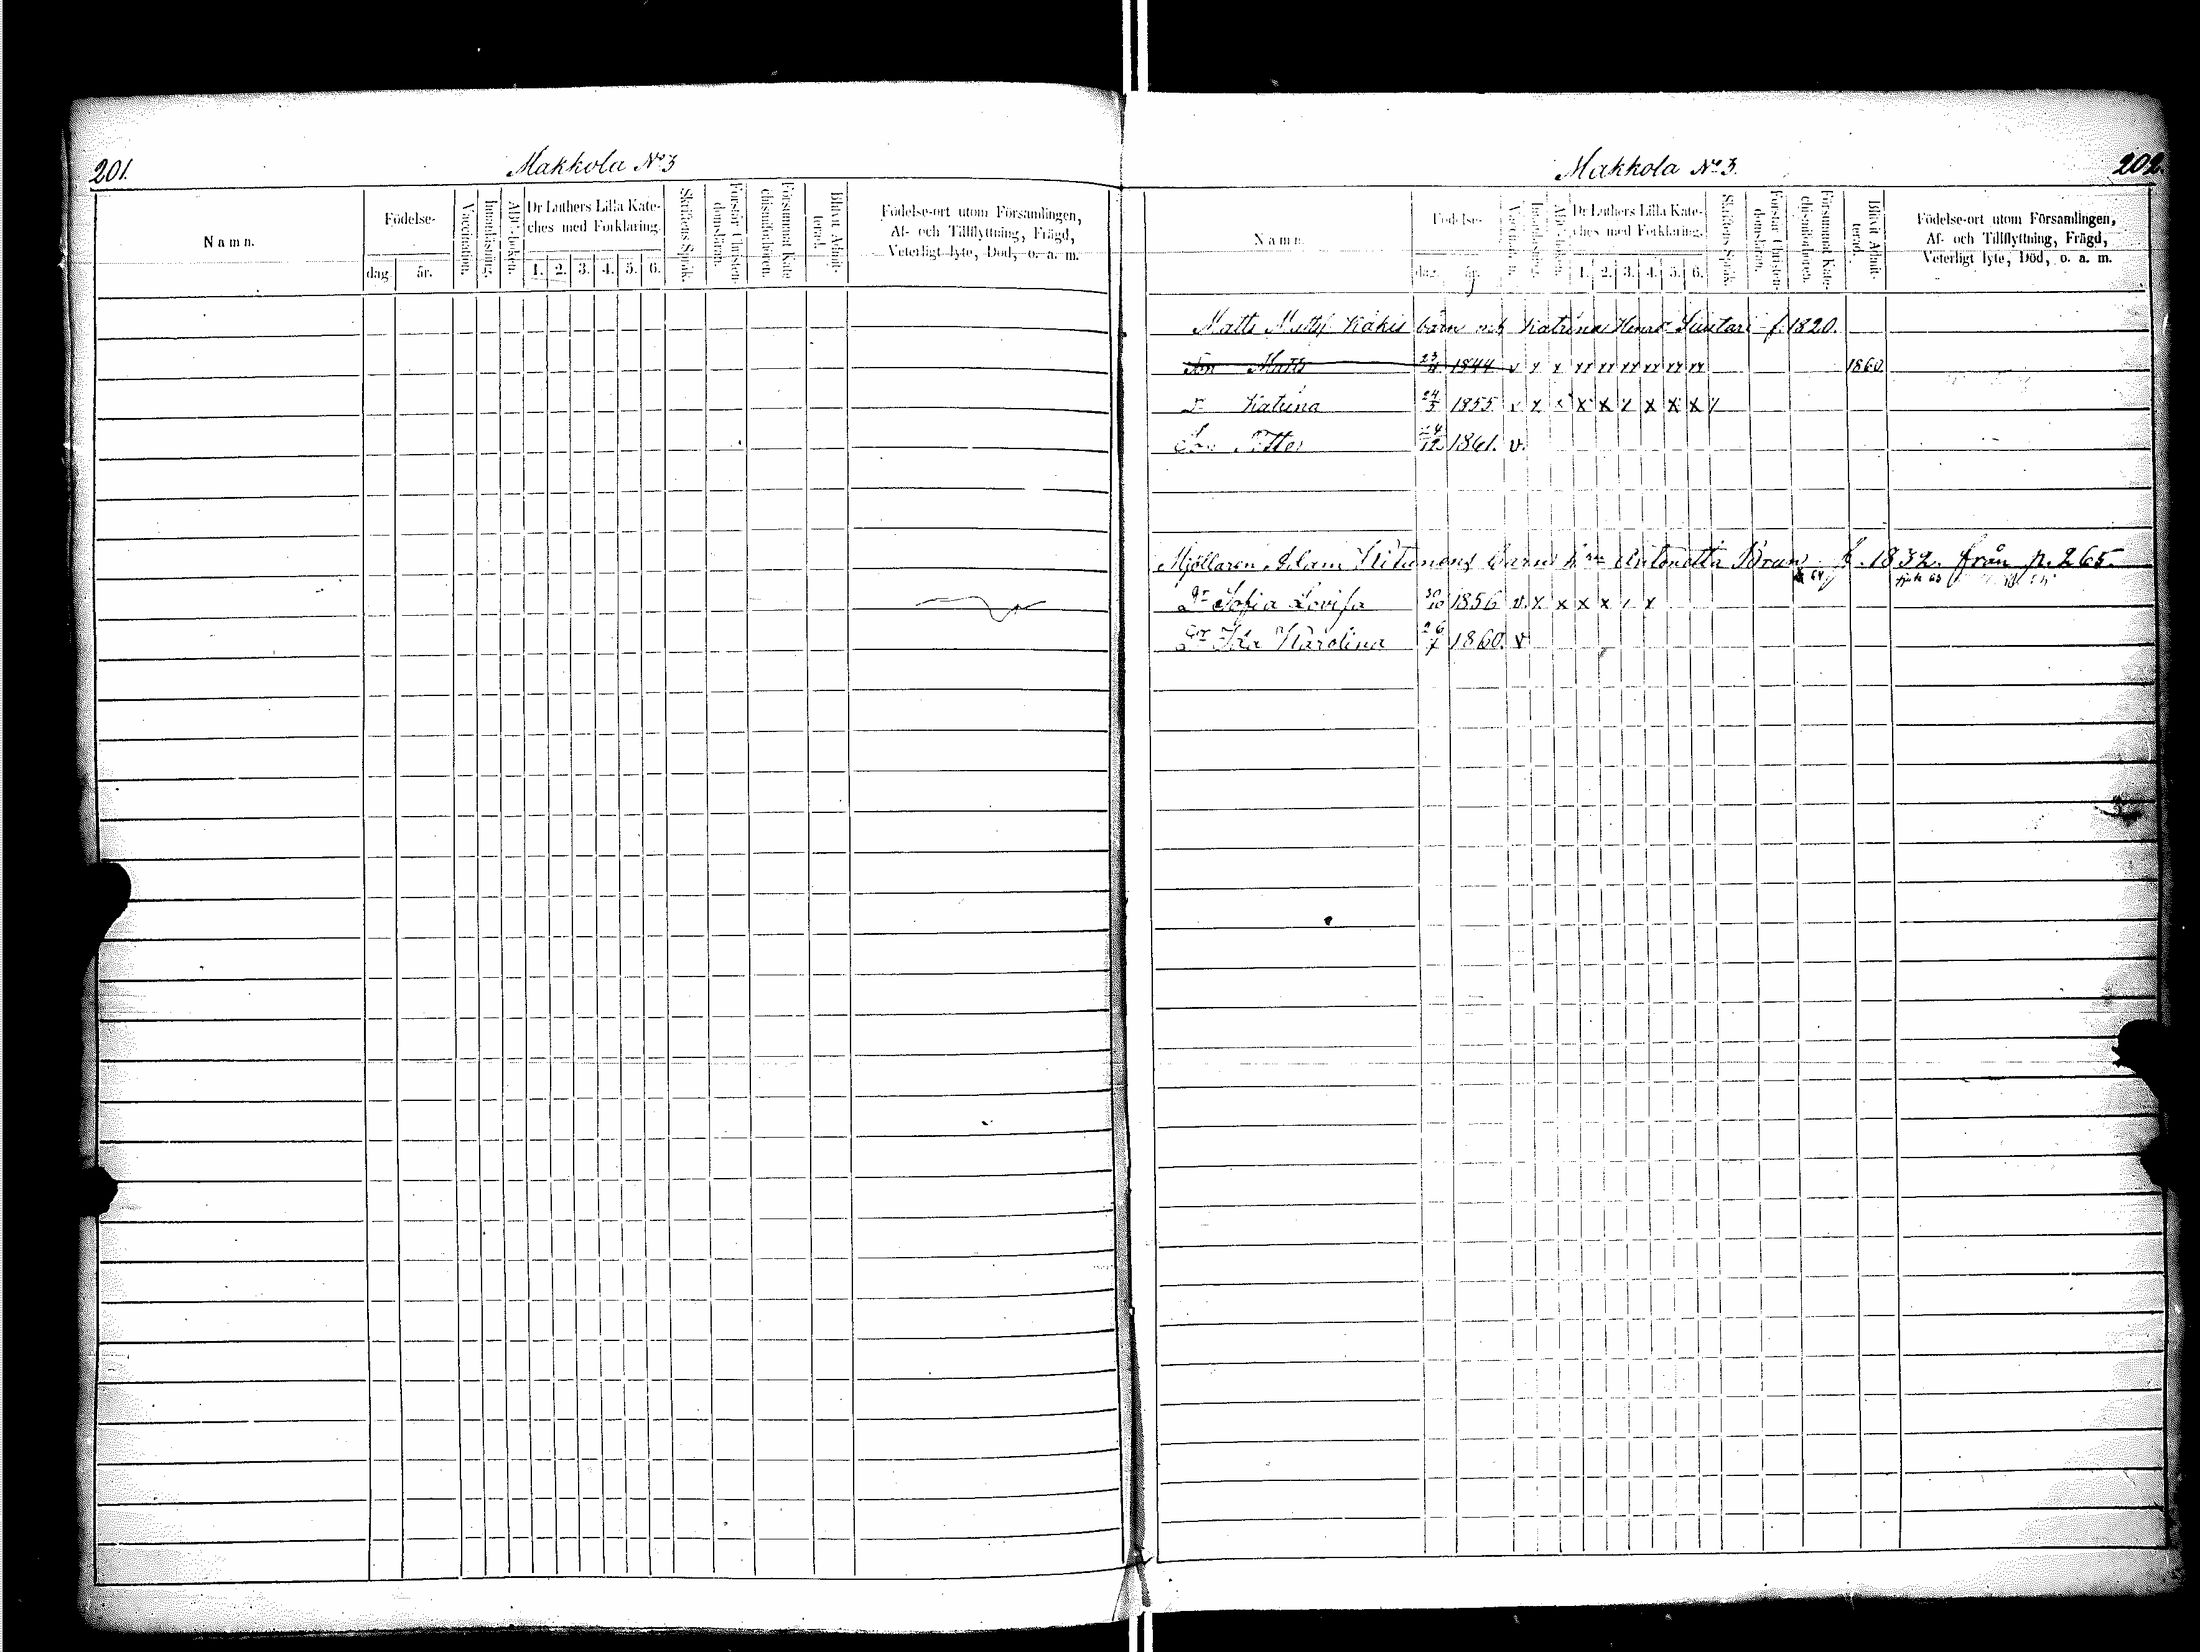 201.
Makkola No 3
Namn.
Födelse-
dag. år.
Vaccination.
Innanläsning.
ABC-boken.
Dr Luthers Lilla Kate-
ches med Förklaring.
1. 2. 3. 4. 5. 6.
Skriftens Språk.
Förstår Christen-
domsläran.
Försummat Kate-
chismiförhören.
Blivit Admit-
terad.
Födelse-ort utom Församlingen,
Af- och Tillflyttning, Frägd,
Veterligt lyte, Död, o. a. m.
Makkola No 3.
202.
Namn.
Födelse-
dag. år.
Dr Luthers Lilla Kate-
ches med Förklaring.
1. 2. 3. 4. 5. 6.
Skriftens Språk.
Förstår Christen-
domsläran.
Försummat Kate-
chismiförhören.
Blivit Admit-
terad.
Födelse-ort utom Församlingen,
Af- och Tillflyttning, Frägd,
Veterligt lyte, Död, o. a. m.
Matts Matts Käkis barn Katrina Henr Suutari f. 1820.
Son Matts 23/11 1844 v x x xx xx xx xx xx xx 1860.
Dr Katrina 24/5 1855 v x x x x x x x x x
Son Petter 24/12 1861. v.
Mjöllaren Adam barn h Antonetta Brun f. 1832. från p. 265.
Dr Sofia Lovisa 30/10 1856 v. x x x x x
Dr Ida Karolina 26/7 1860. v